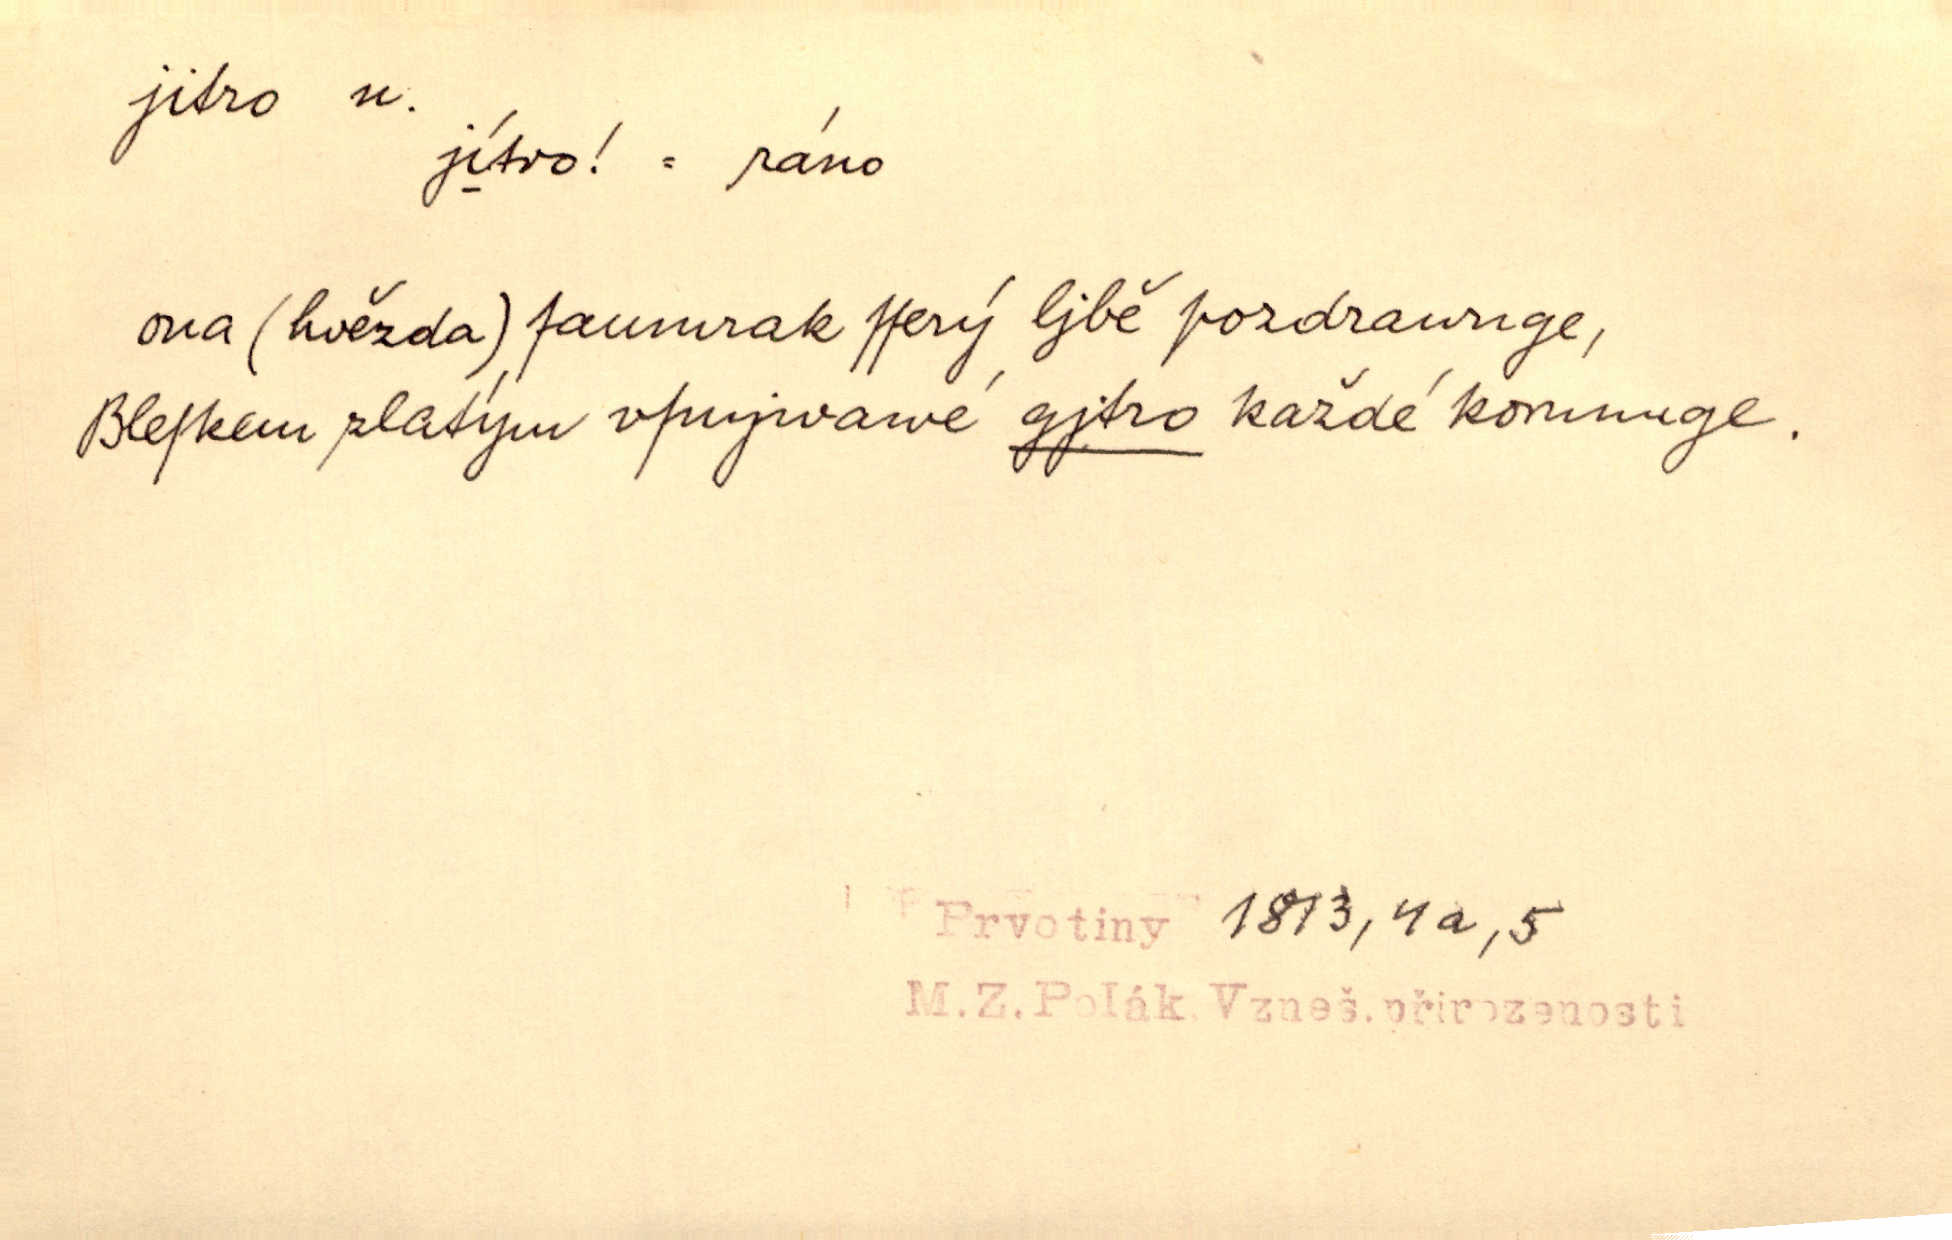 jitro n.
jítro! = ráno
ona (hvězda) ſaumrak ſſerý ljbě pozdrawuge,
Bleſkem zlatým vpujwawé gjtro každé korunuge.
Prvotiny 1813, 4a, 5
M.Z.Polák. Vzneš.přirozenosti